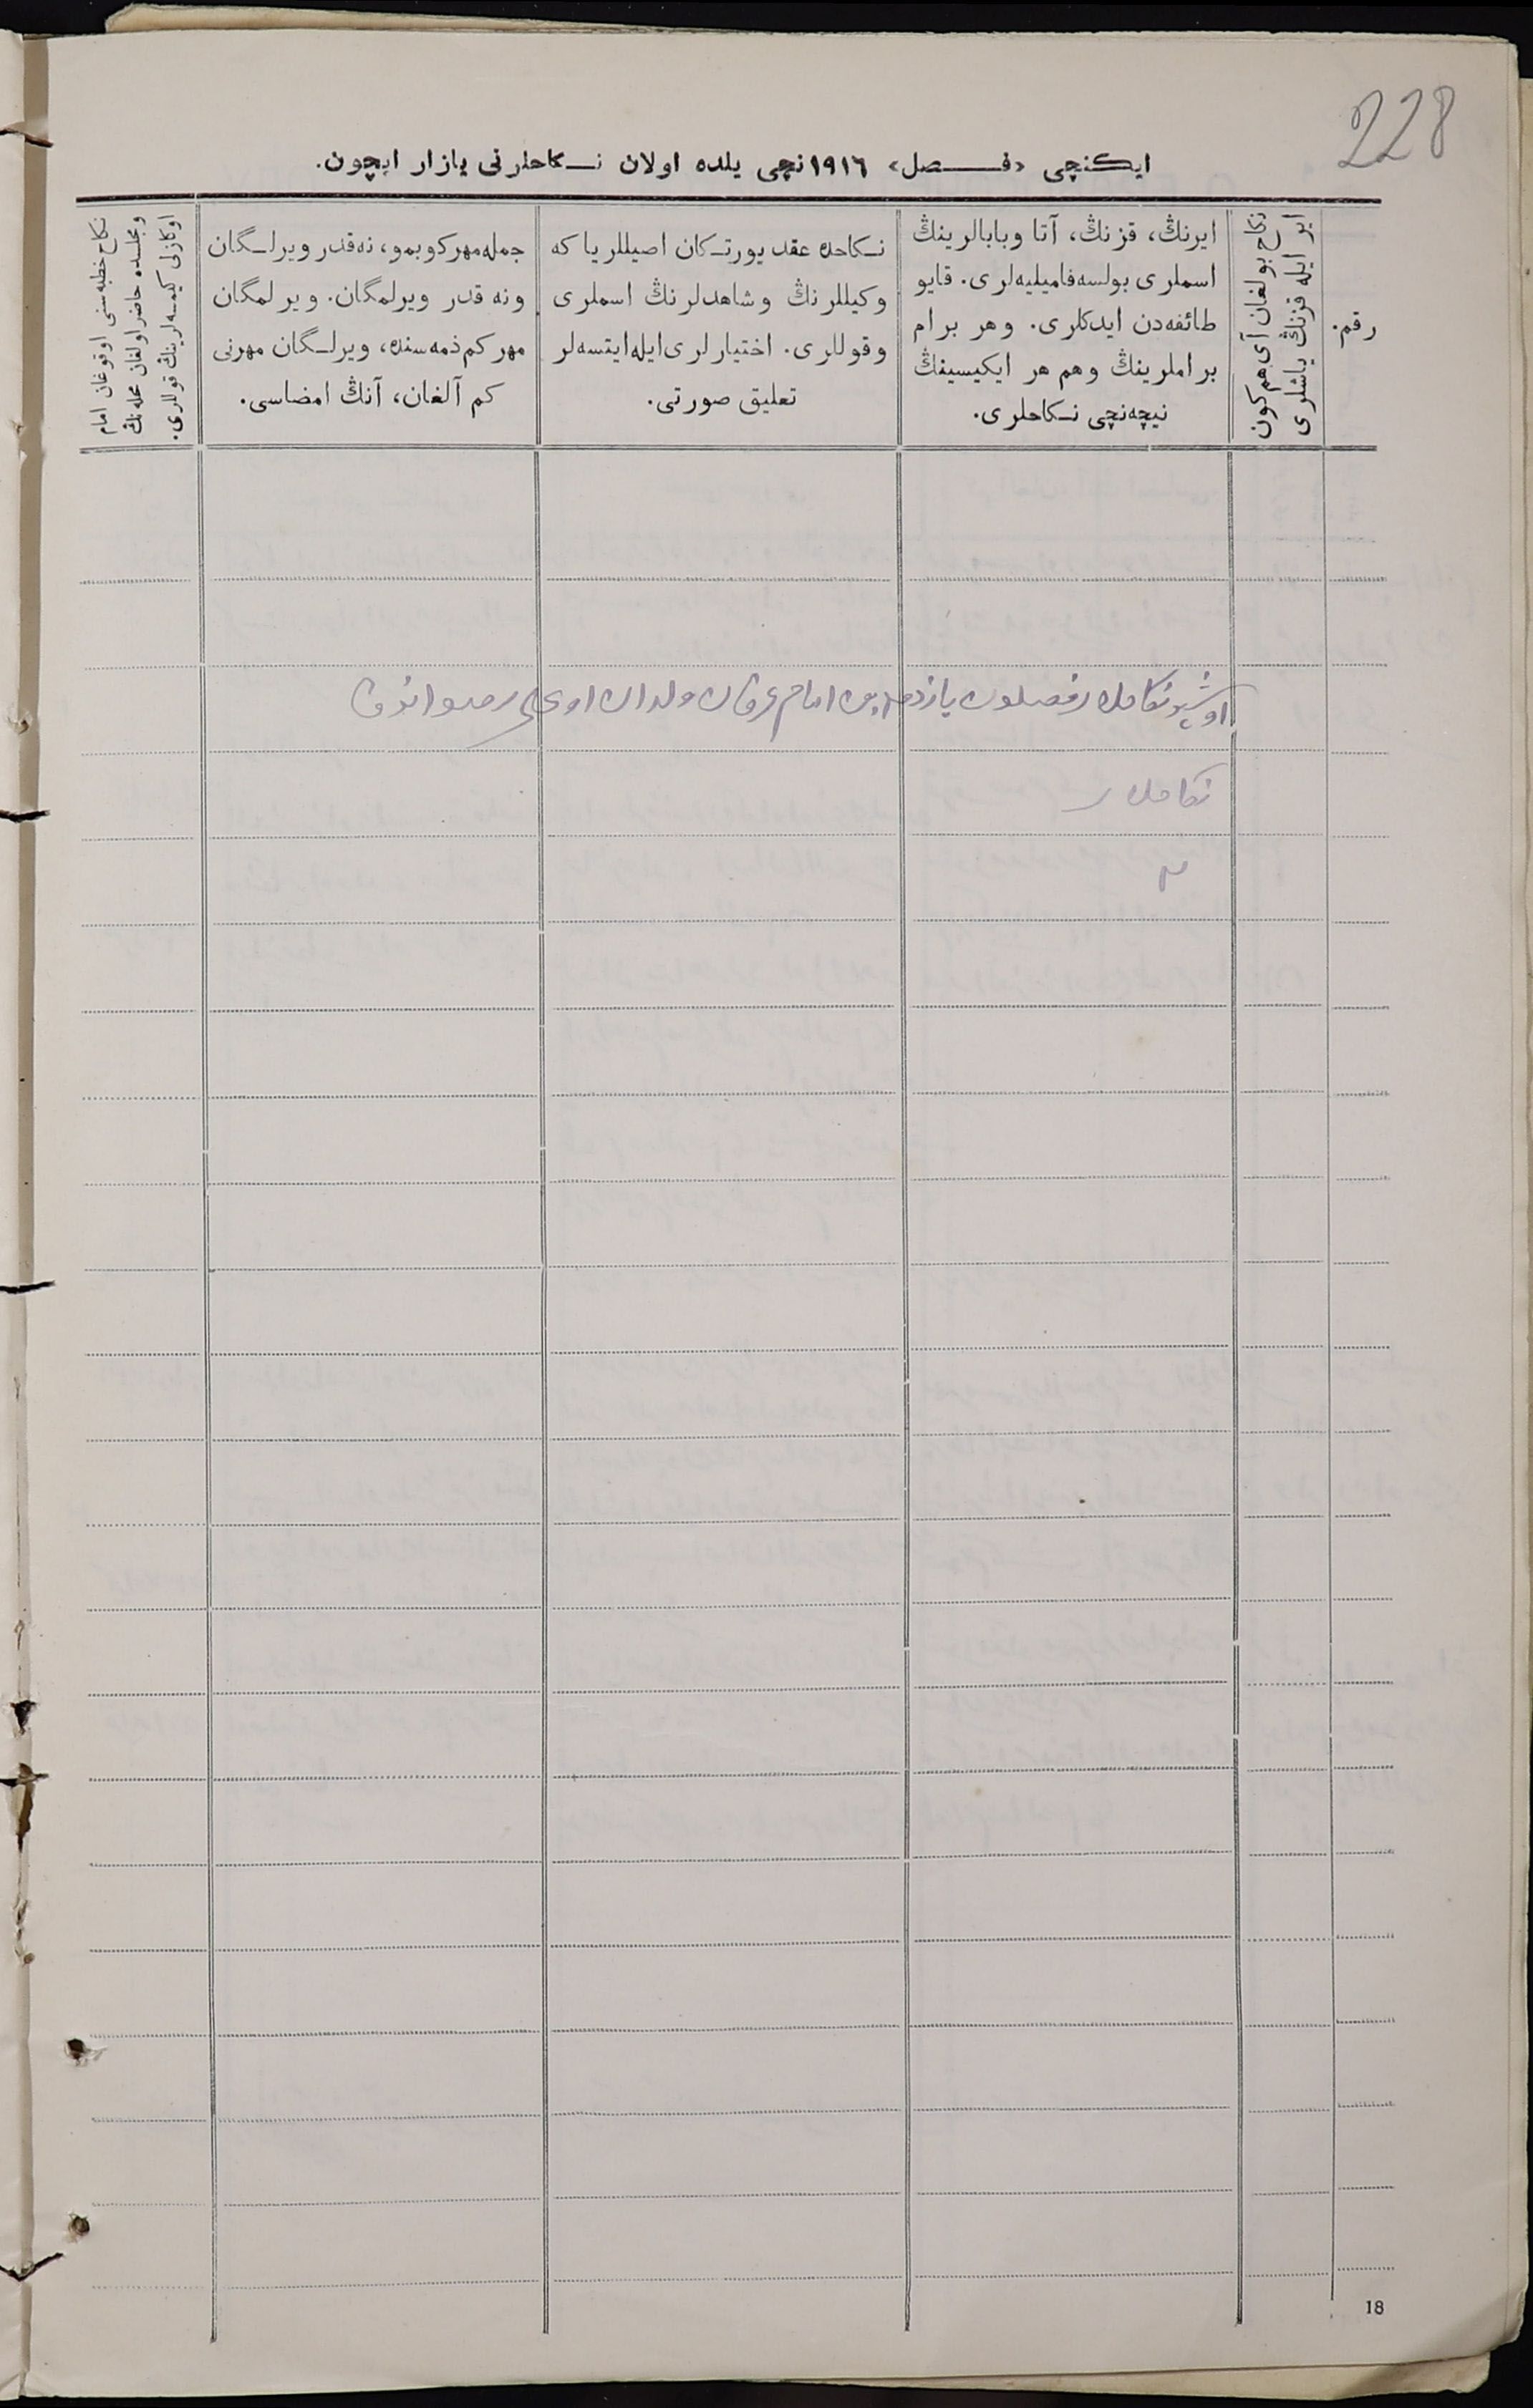 228
ایکنچی «فصل» ۱۹۱٦نچی یلده اولان نکاحلرنی یازار ایچون.
رقم.
نکاح بولغان آی هم کون
ایر ایله قزنڭ یاشلری
ایرنڭ، قزنڭ، آتا وبابالرینڭ
اسملری بولسه فامیلیه‌لری. قایو
طائفه‌دن ایدکلری. وهر برام
براملرینڭ وهم هر ایکیسینڭ
نیچه‌نچی نکاحلری.
نکاحده عقد یورتکان اصیللر یا که
وکیللرنڭ وشاهدلرنڭ اسملری
وقوللری. اختیارلری ایله ایتسه‌لر
تعلیق صورتی.
جمله مهر کوبمو، نه‌قدر ویرلگان
ونه قدر ویرلمگان. ویرلمگان
مهر کم ذمه‌سنده، ویرلگان مهرنی
کم آلغان، آنڭ امضاسی.
نکاح خطبه‌سنی اوقوغان امام
ومجلسده حاضر اولغان محله‌نڭ
اوکازلی کیمسه‌لرینڭ قوللری.
اوشبو نکاحلر یازدم امام
نکاحلر
18